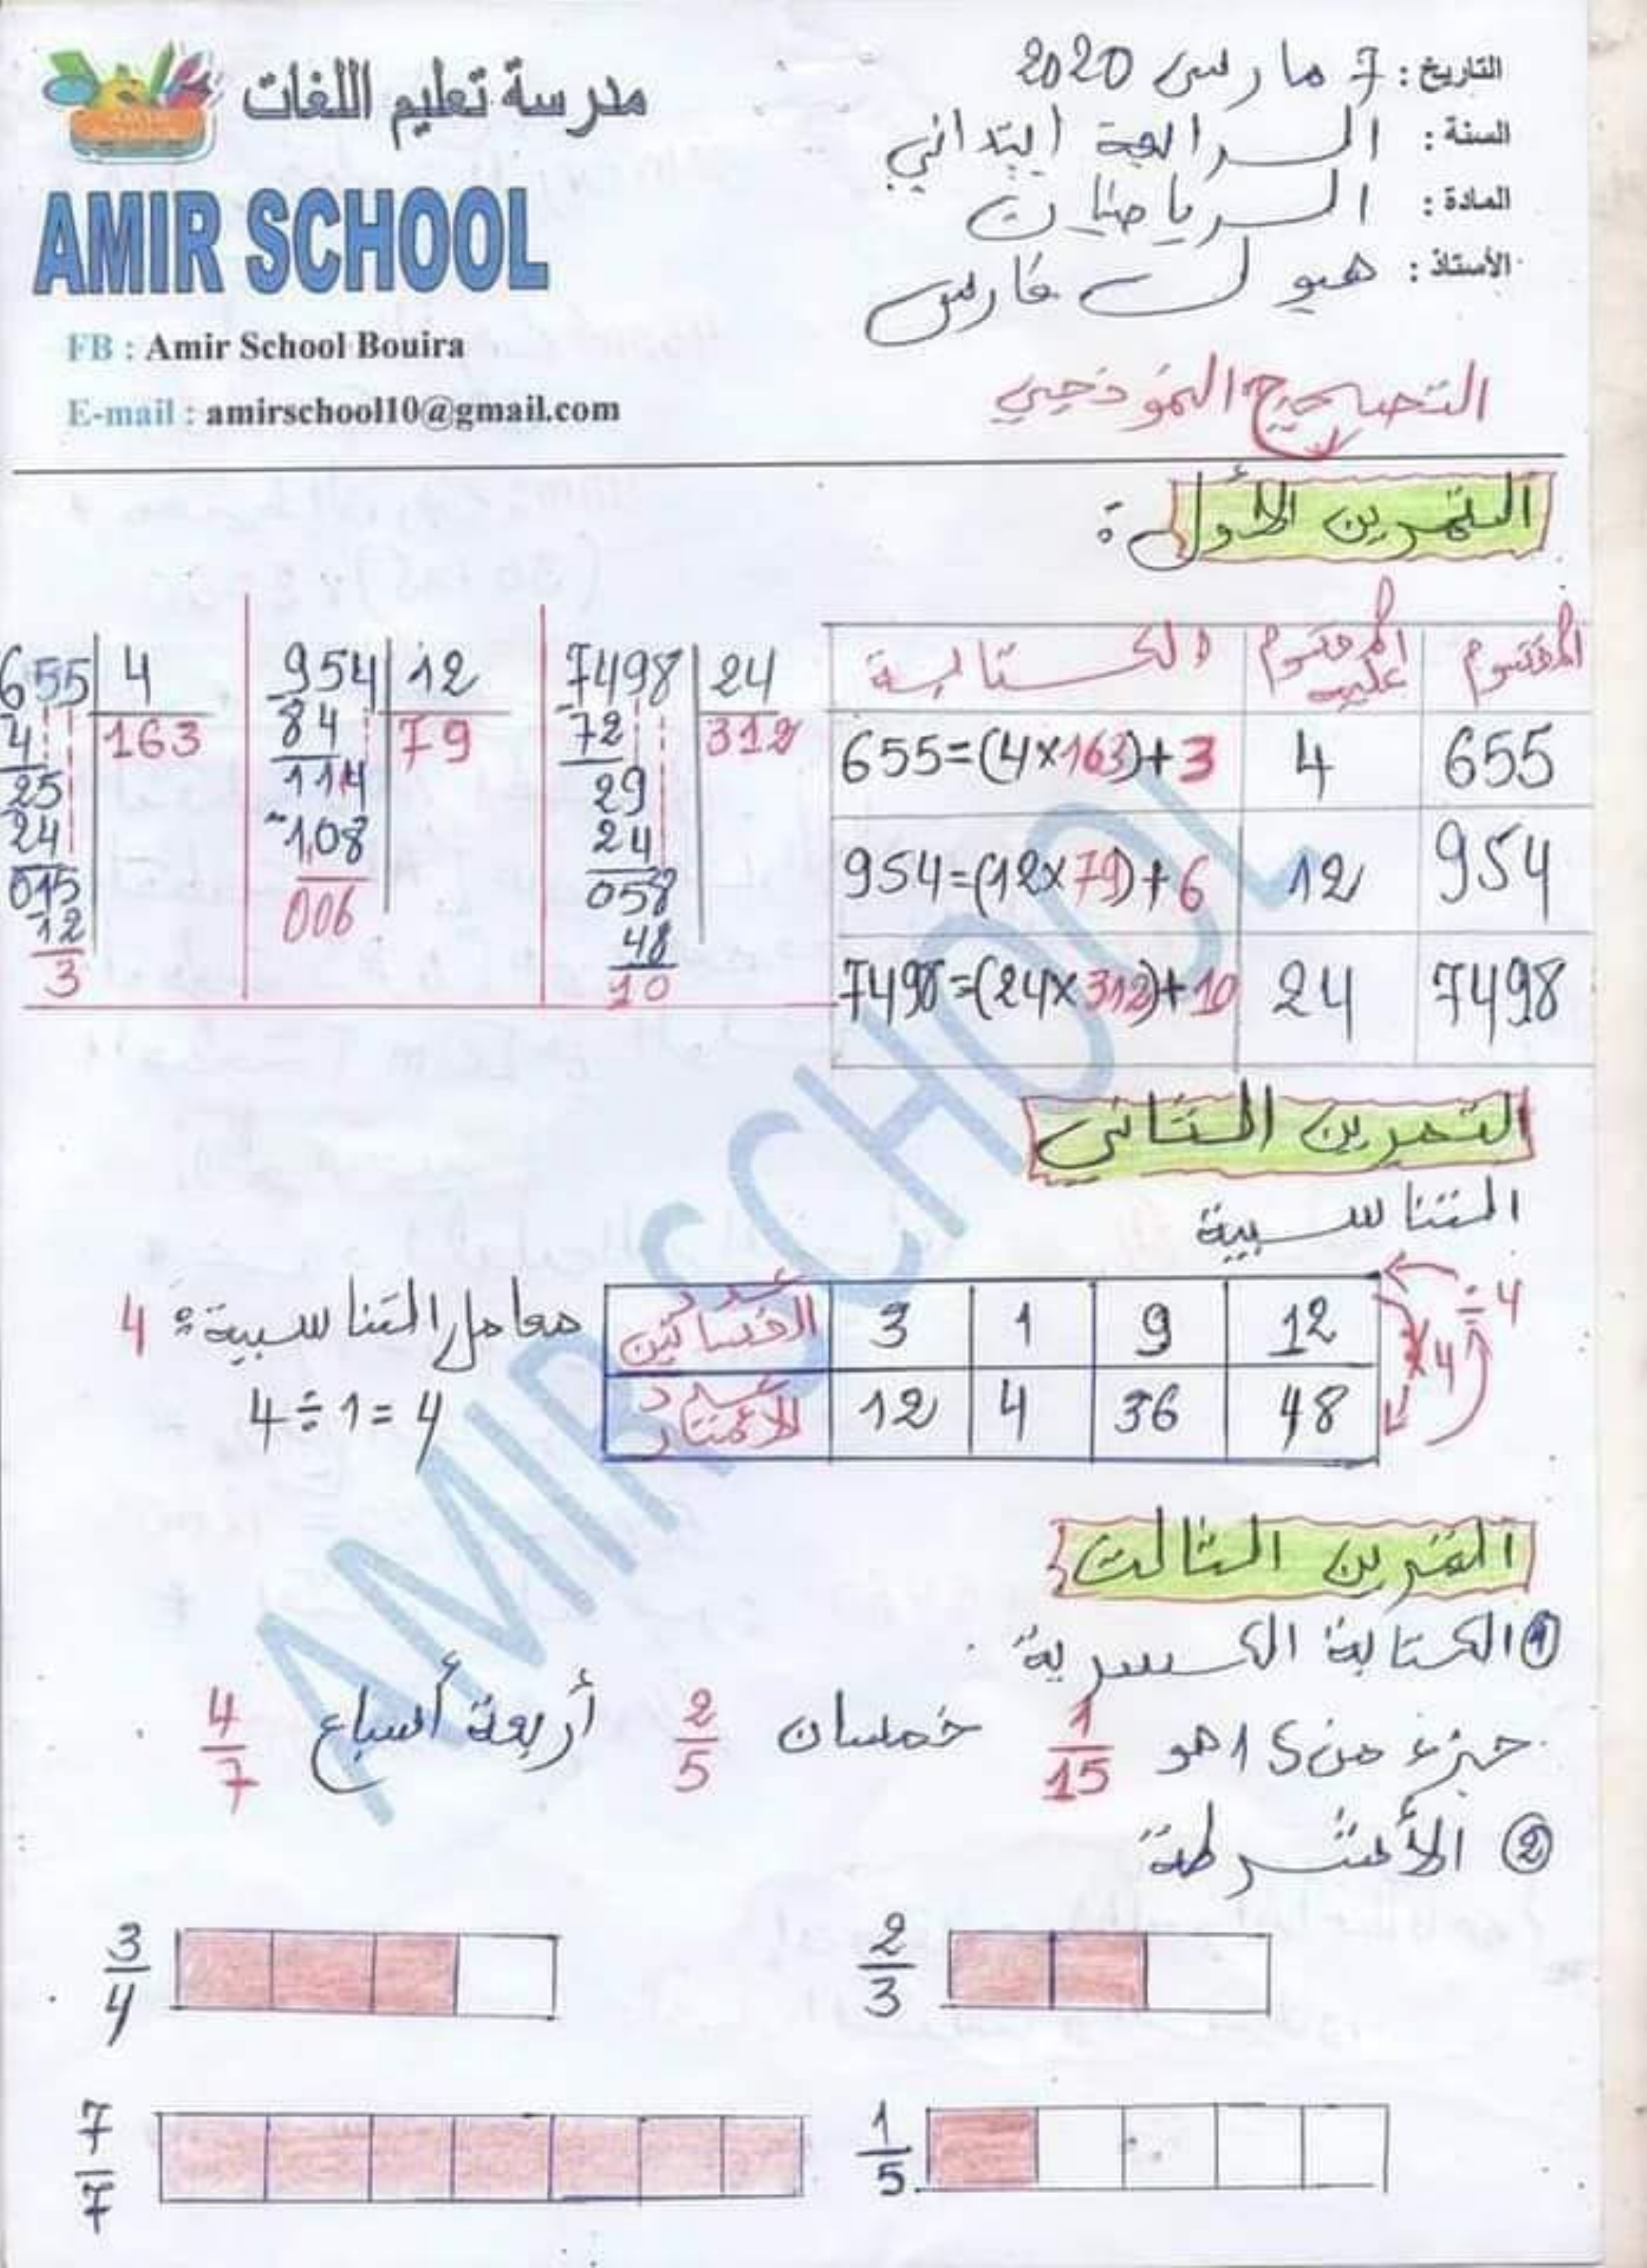 مدرسة تعليم اللغات
AMIR SCHOOL
FB : Amir School Bouira
E-mail : amirschool10@gmail.com
التاريخ : 7 مارس 2020
السنة : الرابعة ابتدائي
المادة : الرياضيات
الأستاذ : فارس
التصحيح النموذجي
التمرين الأول :
المقسوم المقسوم عليه الكتابة
655 4 655=(4×163)+3
954 12 954=(12×79)+6
7498 24 7498=(24×312)+10
7498 24
72 312
29
24
058
48
10
954 12
84 79
114
108
006
655 4
4 163
25
24
015
12
3
التمرين الثاني
التناسبية
عدد الفساتين 3 1 9 12
عدد الأمتار 12 4 36 48
÷4
×4
معامل التناسبية : 4
4÷1=4
التمرين الثالث
① الكتابة الكسرية
جزء من 15 هو 1/15 خمسان 2/5 أربعة أسباع 4/7
② الأشرطة
2/3
3/4
1/5
7/7
AMIR SCHOOL